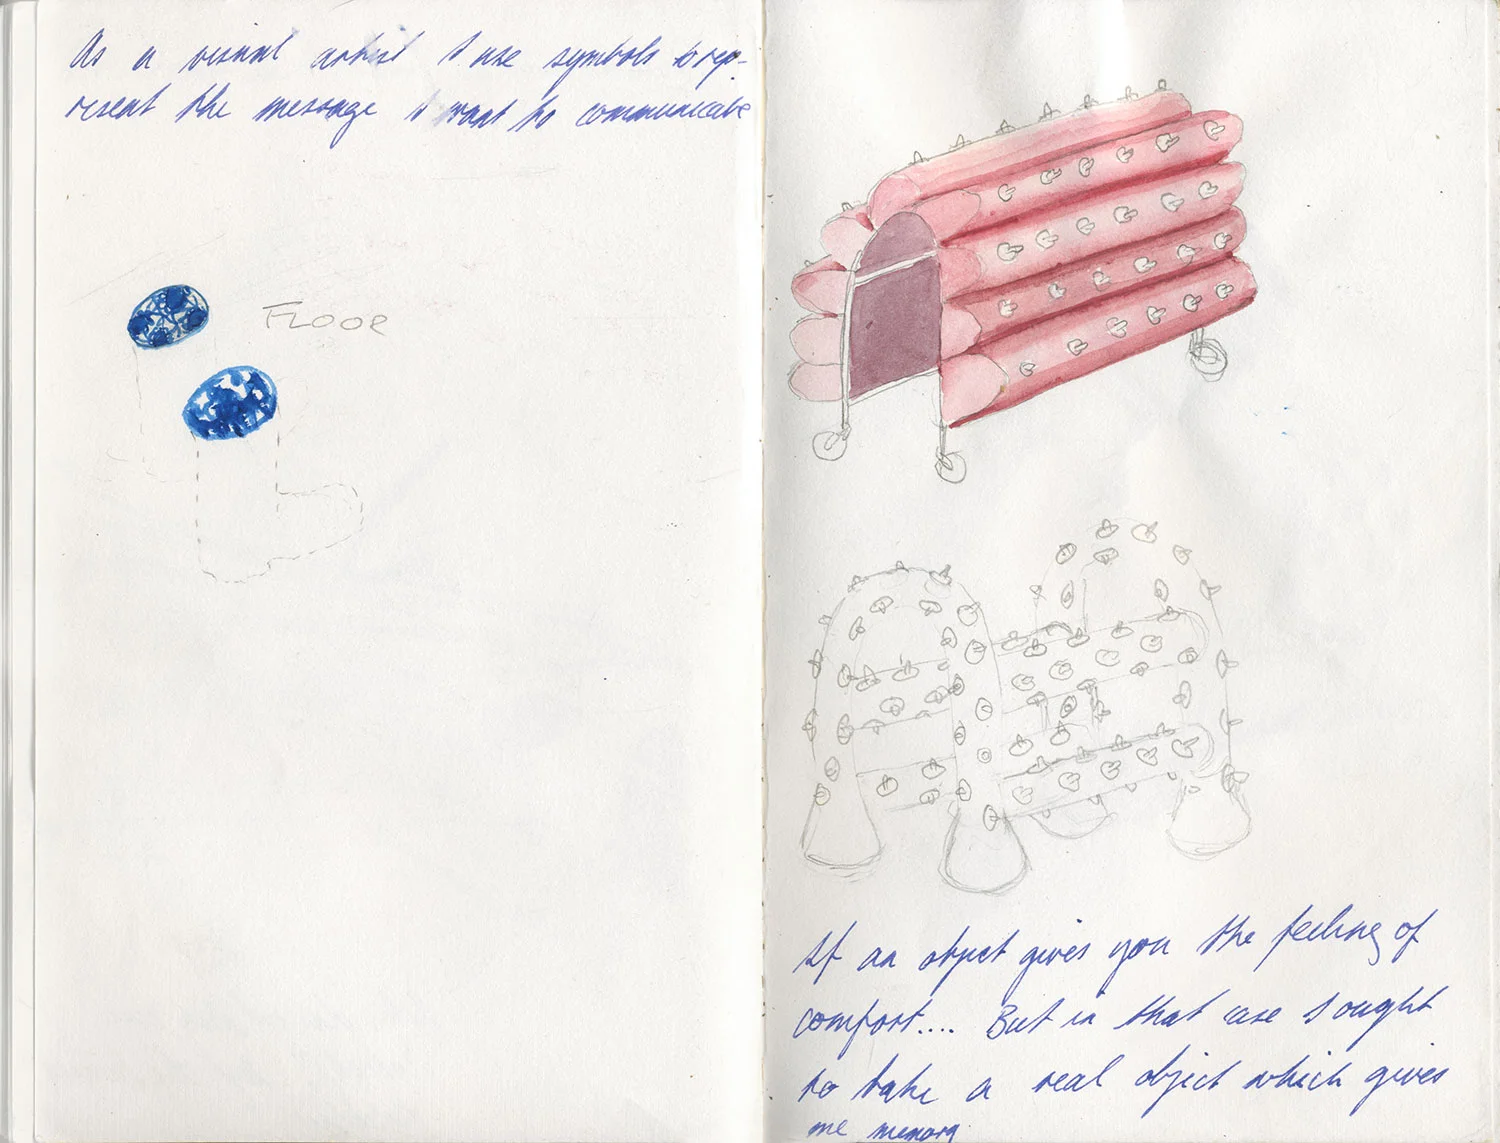 As a visual artist I use symbols to rep-
resent the message I want to communicate
FLOOR
If an object gives you the feeling of
comfort.... But in that case I ought
to take a real object which gives
me memory.